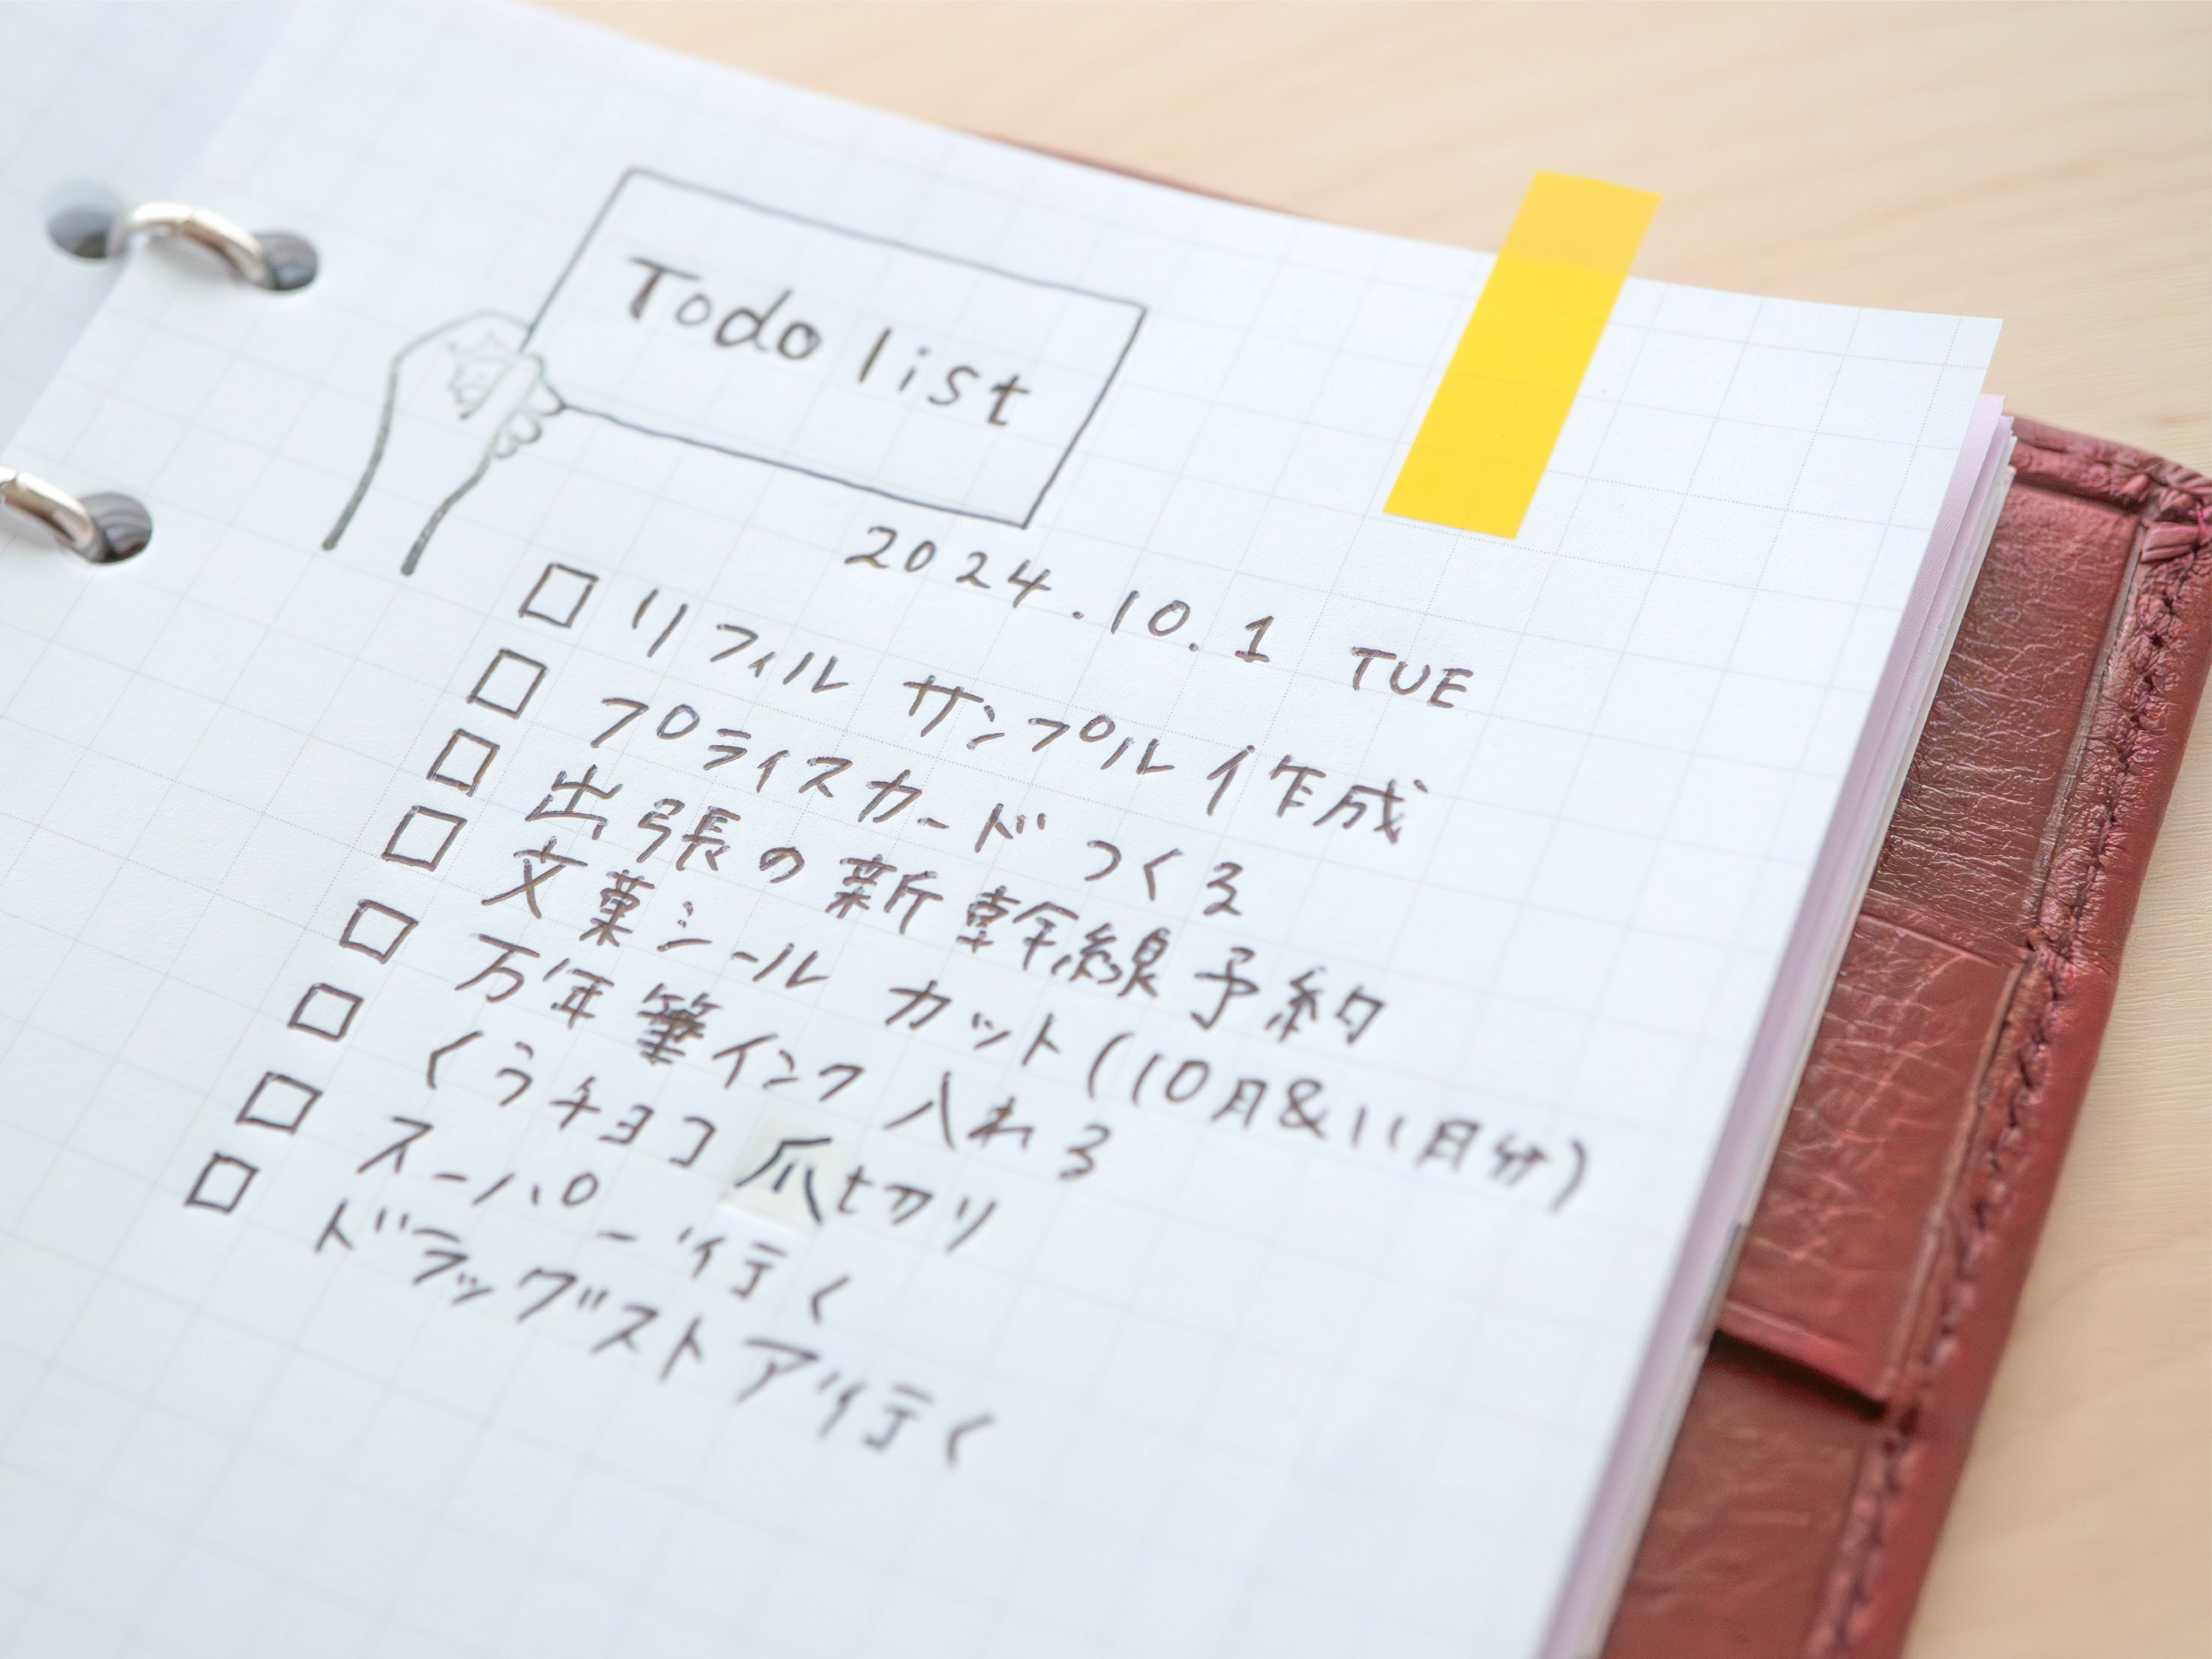 Todo list
2024.10.1 TUE
□ リフィル サンプル 作成
□ プライスカード つくる
□ 出張の新幹線予約
□ 文菓シール カット(10月&11月分)
□ 万年筆インク入れる
□ くうチョコ爪切り
□ スーパー行く
□ ドラッグストア行く